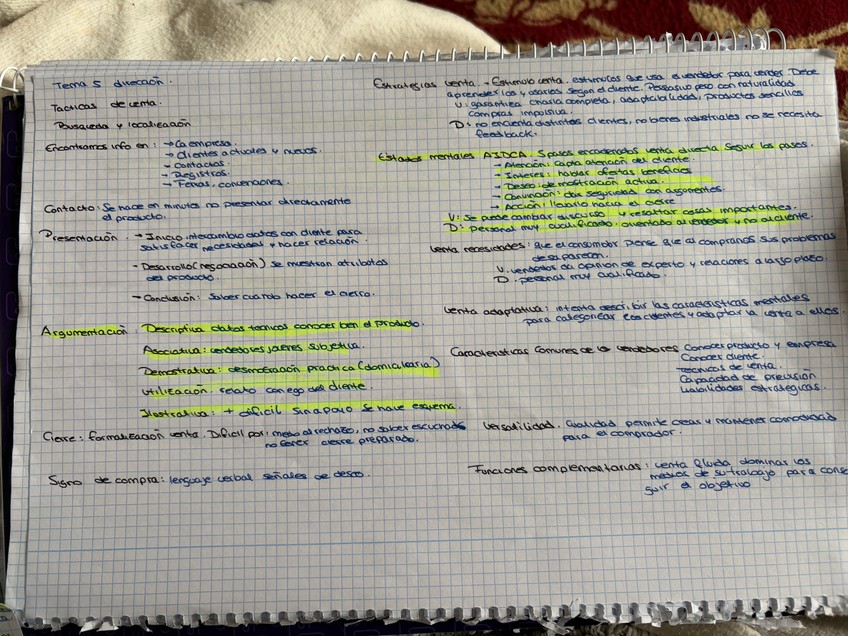 Tema 5 dirección.
Tacticas de venta.
Busqueda y localización
Encontramos info en: → Ca empresa.
→ Clientes actuales y nuevos.
→ Contactos.
→ Registros.
→ Ferias, convenciones.
Contacto: Se hace en minutos no presentar directamente
el producto.
Presentación → Inicio intercambio datos con cliente para
satisfacer necesidades y hacer relación.
- Desarrollo (negociación) se muestran atributos
del producto.
- Conclusión: saber cuando hacer el cierre.
Argumentación: Descriptiva datos tecnicos conocer bien el producto.
Asociativa: vendedores subjetiva.
Demostrativa: desmostración practica (domiciliaria)
Utilización: relato con ego del cliente
Ilustrativa: + dificil sin apoyo se hace esquema.
Cierre: formalización venta. Dificil por: miedo al rechazo, no saber escuchar
no tener cierre preparado.
Signo de compra: lenguaje verbal señales de deseo.
Estrategias venta - Estimulo venta. estimulos que usa el vendedor para vender Debe
aprenderlos y usarlos segun el cliente. Persuasivo pero con naturalidad
V: garantiza charla completa, adaptabilidad, productos sencillos
compras impulsiva.
D: no en cuenta distintos clientes, no bienes industriales no se necesita
feedback.
Estados mentales AIDCA. 5 pasos encadenados venta directa seguir los pasos.
- Atención: capta atención del cliente.
- Interes: hablar ofertas beneficios
- Deseo: demostración activa.
- Convinción: dar seguridad con argumentos.
- Acción: llevarlo hacia el cierre
V: se puede cambiar discurso y resaltar cosas importantes.
D: personal muy cualificado. orientado al vendedor y no al cliente.
Venta necesidades: que el consumidor piense que al comprarnos sus problemas
desaparecen.
V. vendedor da opinion de experto y relaciones a largo plazo.
D. personal muy cualificado.
Venta adaptativa: intenta describir las características mentales
para categorizar los clientes y adaptar la venta a ellos.
Características comunes de los vendedores Conocer producto y empresa
Conocer cliente.
Tecnicas de venta.
Capacidad de previsión
Habilidades estrategicas.
Versatilidad. Cualidad permite crear y mantener comodidad
para el comprador.
Funciones complementarias: venta fluida dominar los
medios de su trabajo para conse
guir el objetivo